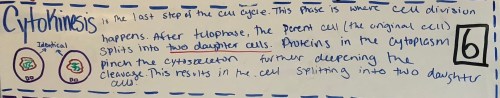 Cytokinesis is the last step of the cell cycle. This phase is where cell division
happens. After telophase, the parent cell (the original cell)
Splits into two daughter cells. Proteins in the cytoplasm
pinch the cytoskeleton further deepening the
cleavage. This results in the cell splitting into two daughter
cells.
Identical
6